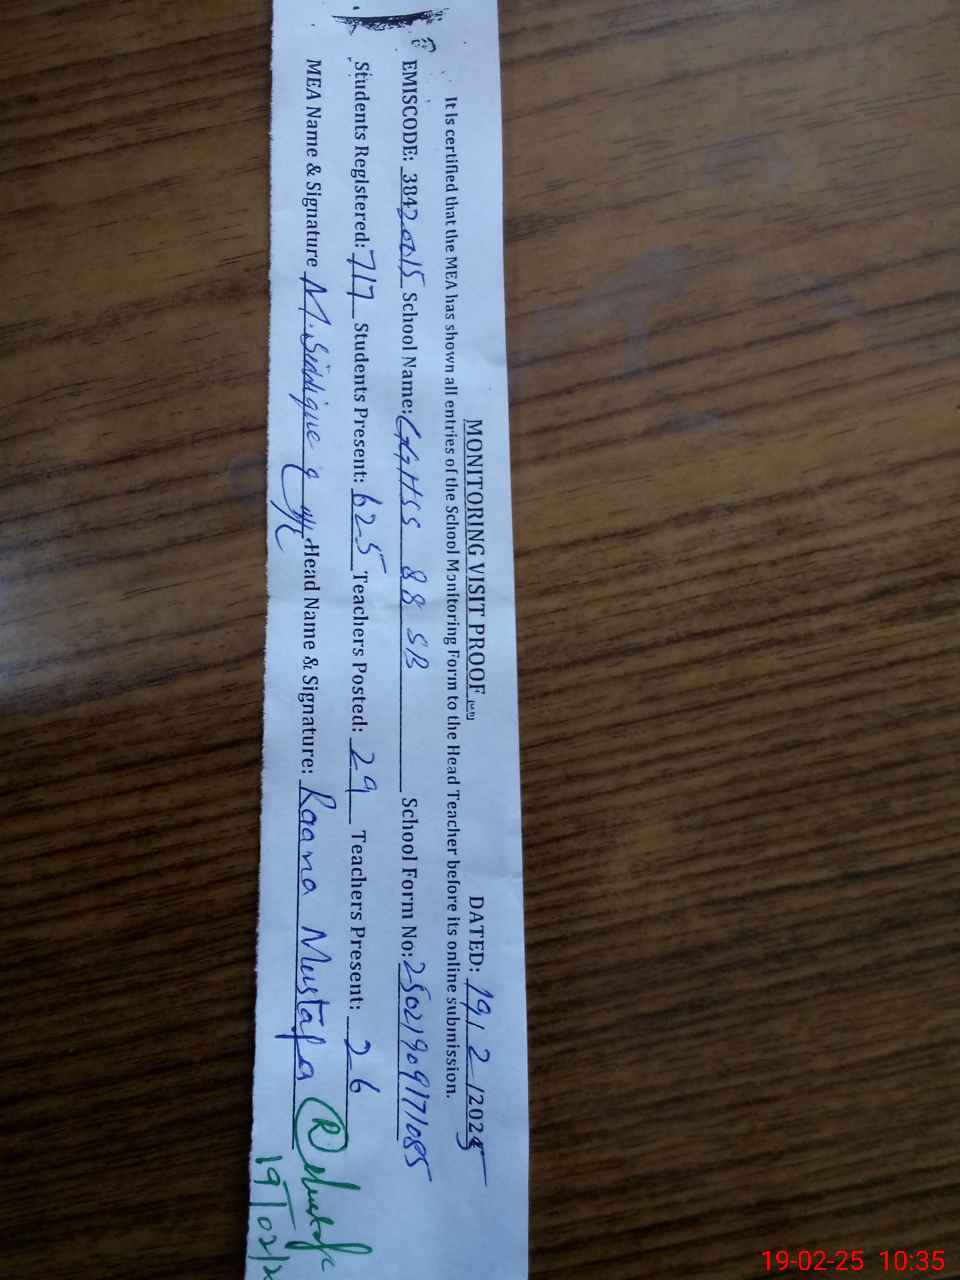 MONITORING VISIT PROOF DATED: 19/2/2025
It Is certified that the MEA has shown all entries of the School Monitoring Form to the Head Teacher before its online submission.
EMISCODE: 38420015 School Name: GGHSS 88 SB School Form No: 25021909171085
Students Registered: 717 Students Present: 625 Teachers Posted: 29 Teachers Present: 26
MEA Name & Signature M. Siddique Head Name & Signature: Raana Mustafa
19/02/2
19-02-25 10:35